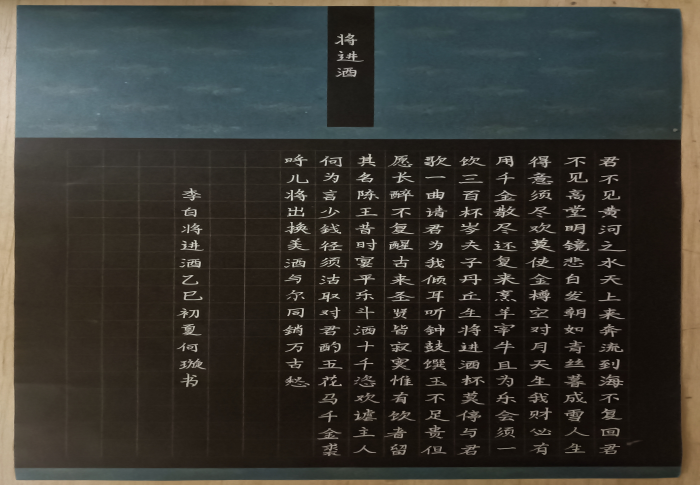 将进酒
君不见黄河之水天上来奔流到海不复回君
不见高堂明镜悲白发朝如青丝暮成雪人生
得意须尽欢莫使金樽空对月天生我财必有
用千金散尽还复来烹羊宰牛且为乐会须一
饮三百杯岑夫子丹丘生将进酒杯莫停与君
歌一曲请君为我倾耳听钟鼓馔玉不足贵但
愿长醉不复醒古来圣贤皆寂寞惟有饮者留
其名陈王昔时宴平乐斗酒十千恣欢谑主人
何为言少錢径须沽取对君酌五花马千金裘
呼儿将出换美酒与尔同銷万古愁
李白将进酒乙巳初夏何璇书